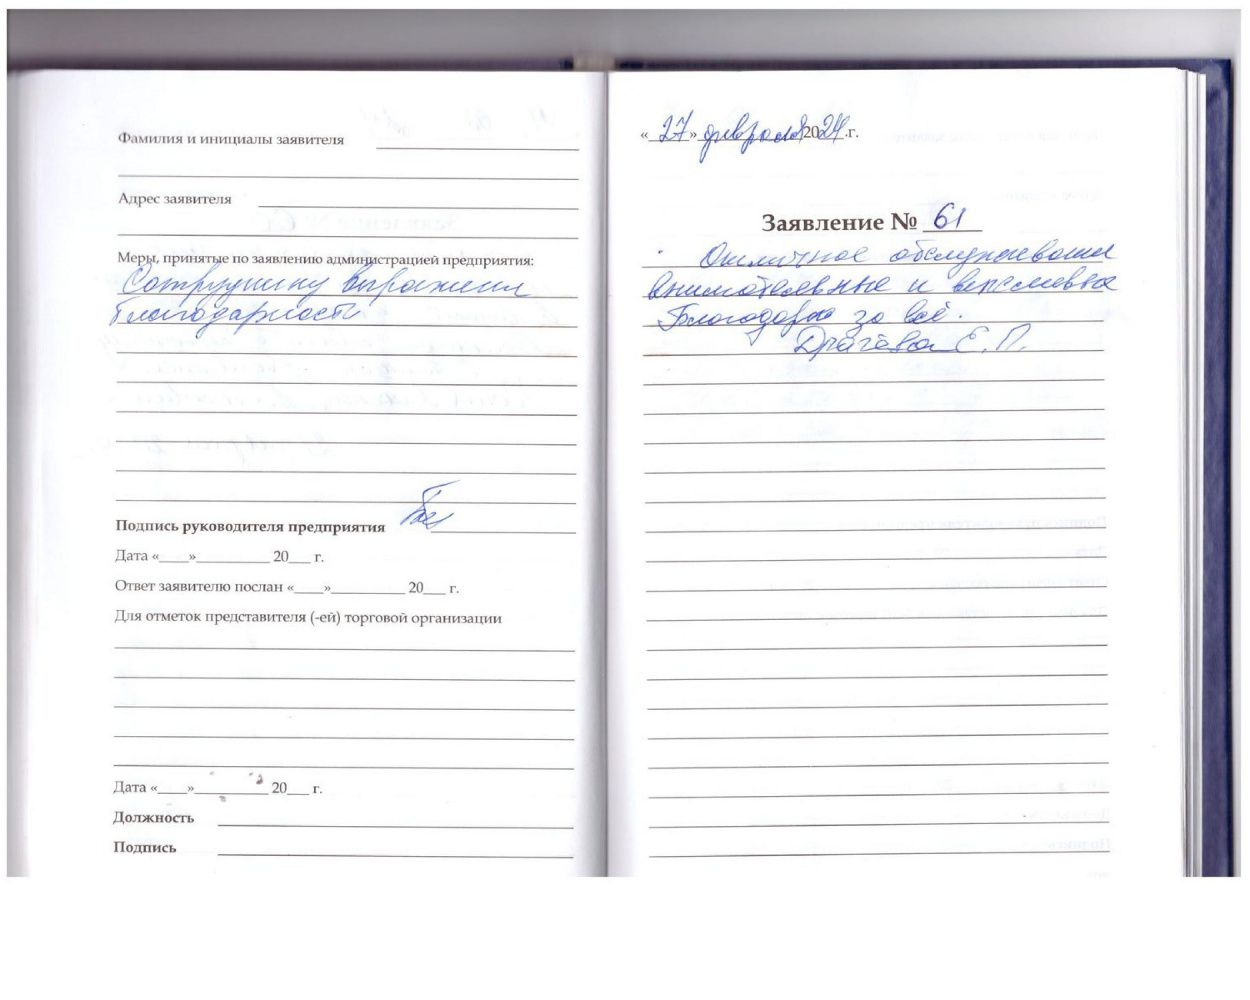 Фамилия и инициалы заявителя
Адрес заявителя
Меры, принятые по заявлению администрацией предприятия:
Сотруднику выражены
благодарность
Подпись руководителя предприятия
Дата «____»__________ 20___ г.
Ответ заявителю послан «____»__________ 20___ г.
Для отметок представителя (-ей) торговой организации
Дата «____»__________ 20___ г.
Должность
Подпись
«27» февраля 2024 г.
Заявление № 61
Отличное обслуживание
внимательные и вежливые
Благодарю за всё.
Драчёва Е.П.